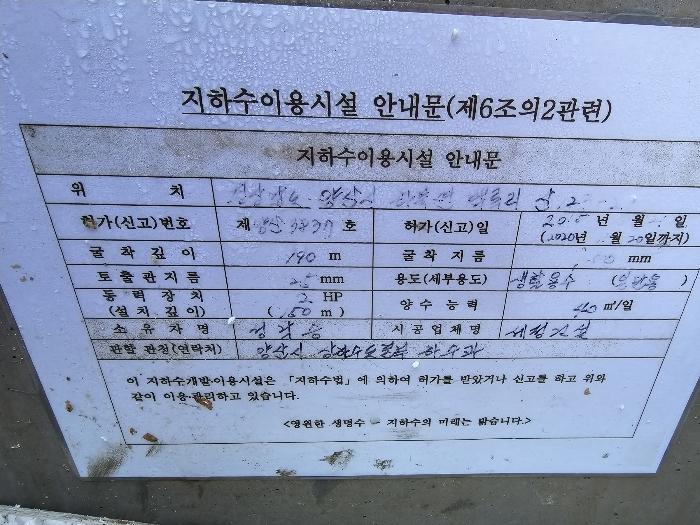 지하수이용시설 안내문(제6조의2관련)
지하수이용시설 안내문
위 치 양산시 산 2
허가(신고)번호 제 호 허가(신고)일 년 월 일
(2020년 월 20일까지)
굴착깊이 190 m 굴착지름 mm
토출관지름 25 mm 용도(세부용도) 생활용수 (일반용)
동력장치 2 HP
(설치 깊이) (150 m) 양수능력 40 ㎥/일
소유자명 시공업체명 세정건설
관할 관청(연락처) 양산시 하수과
이 지하수개발·이용시설은 「지하수법」에 의하여 허가를 받았거나 신고를 하고 위와
같이 이용·관리하고 있습니다.
<영원한 생명수 - 지하수의 미래는 밝습니다.>